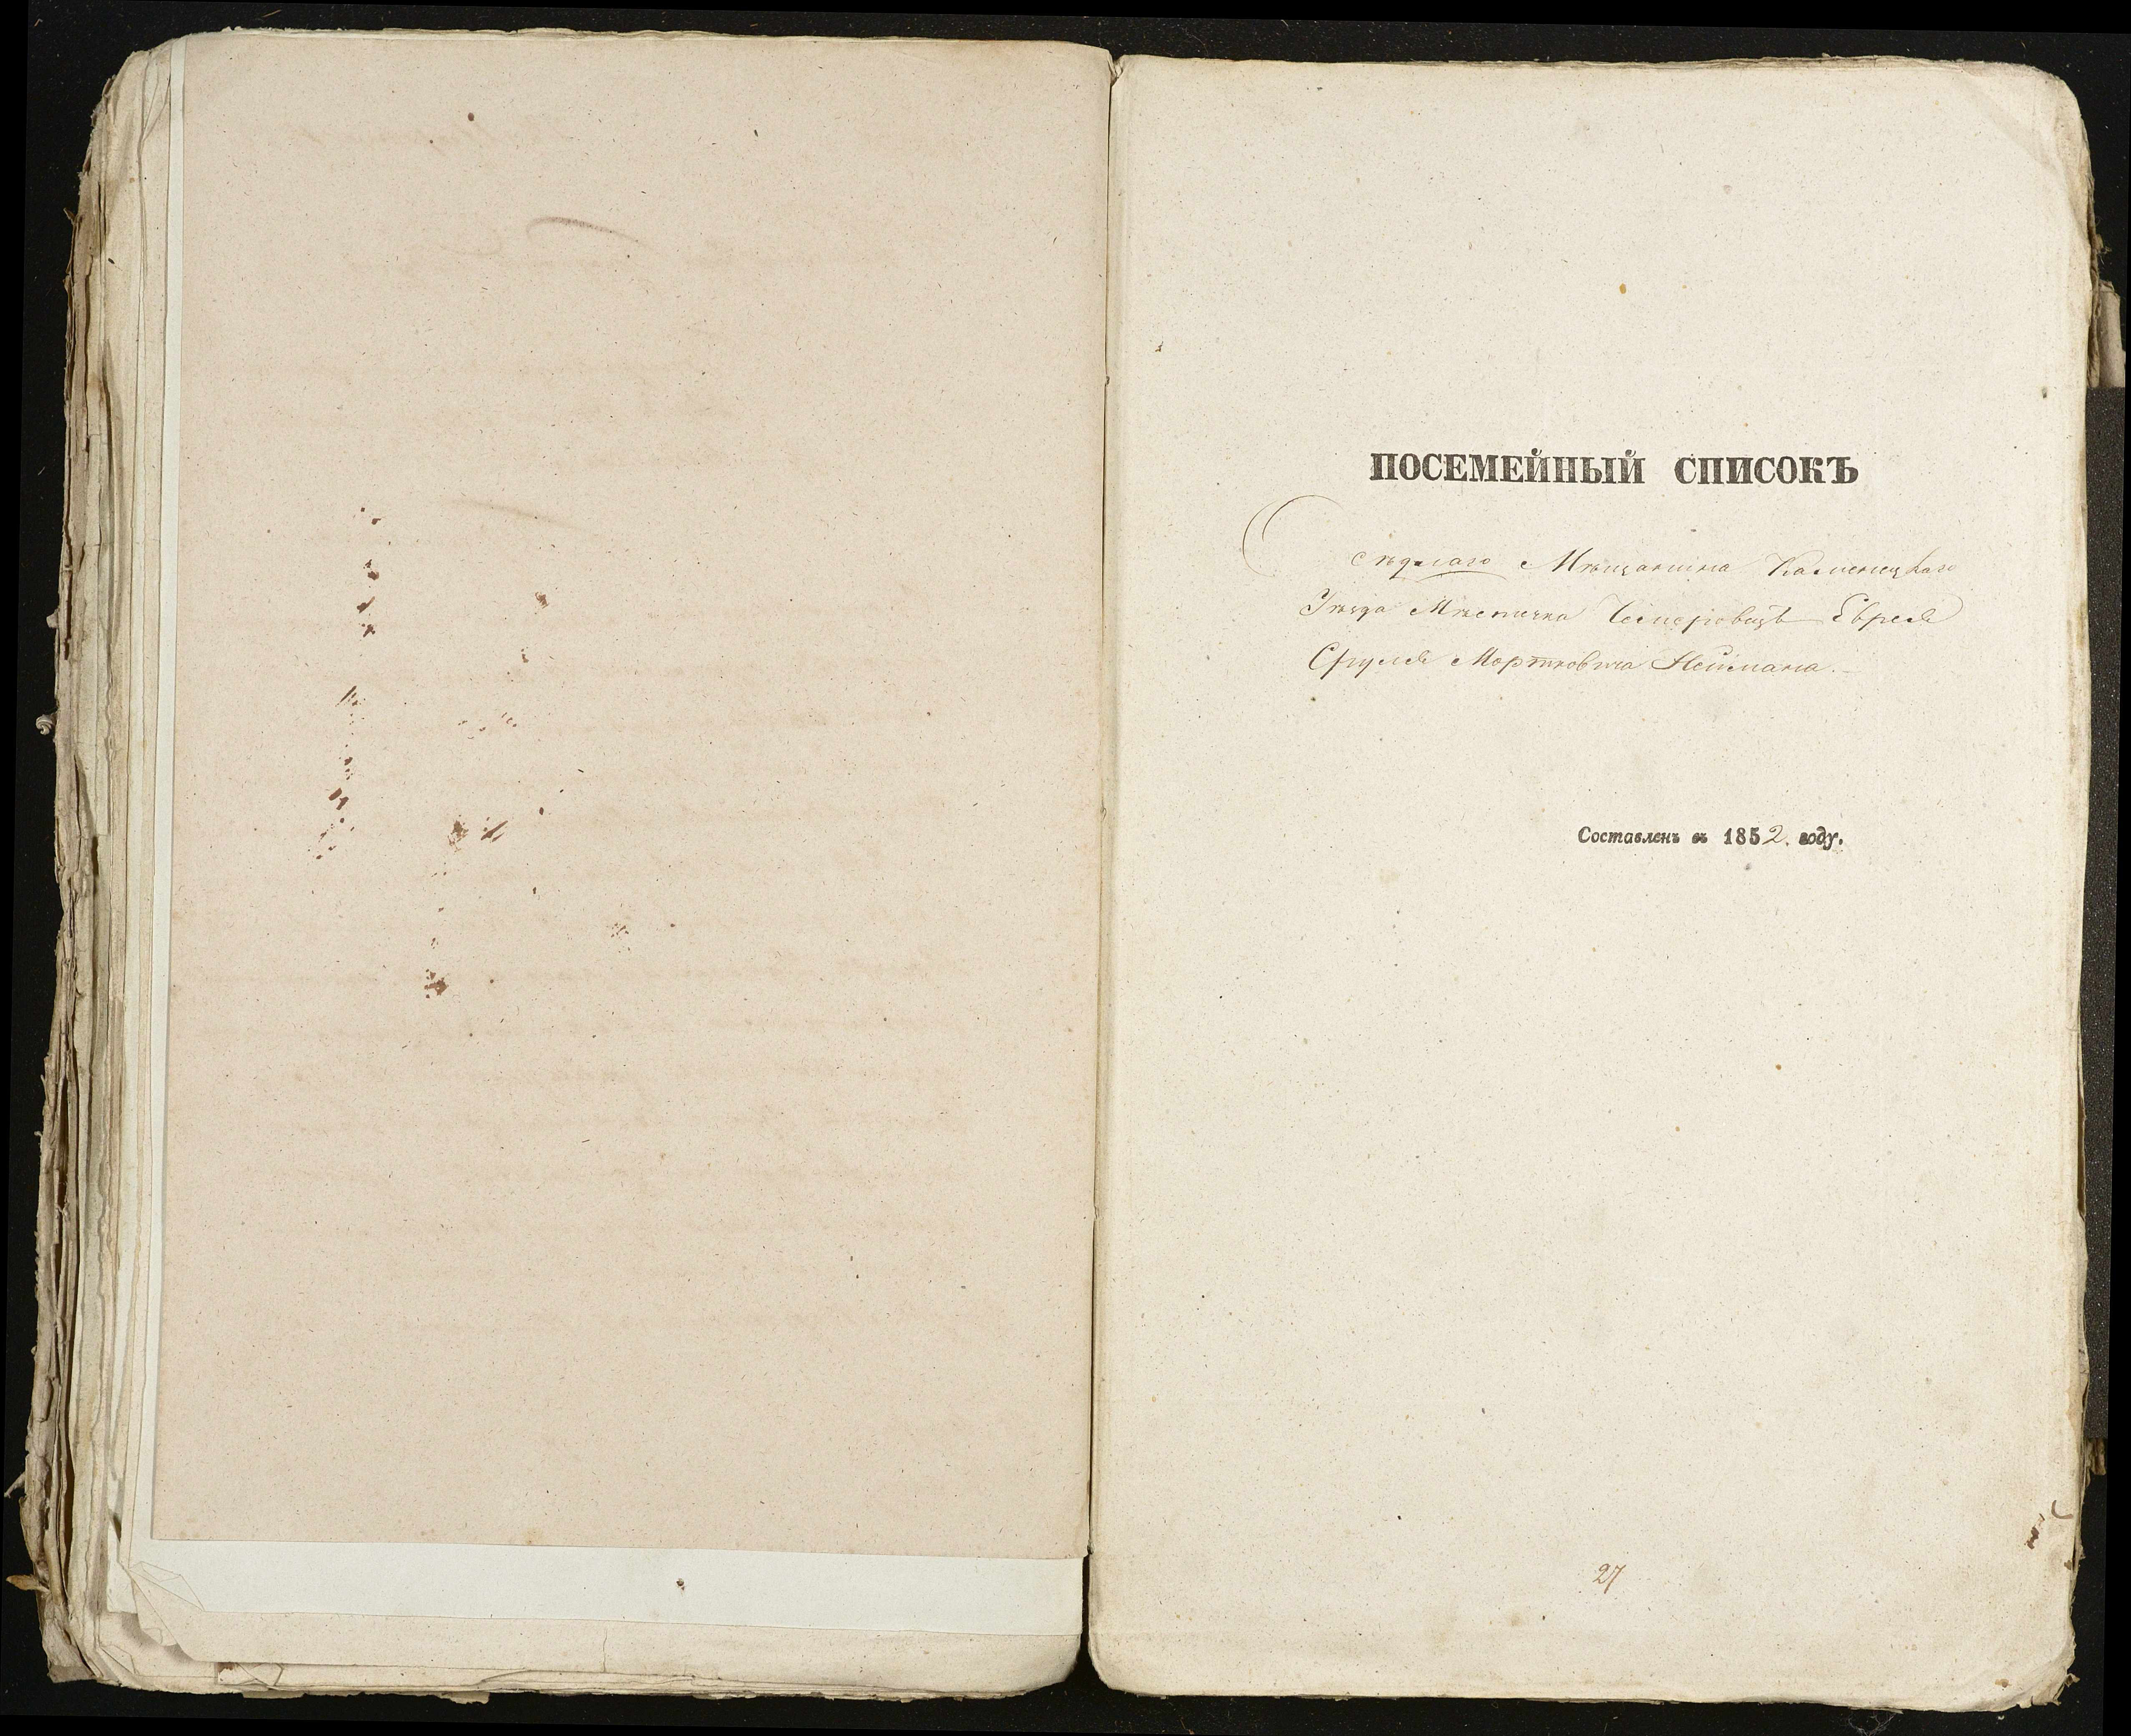 ПОСЕМЕЙНЫЙ СПИСОКЪ
Осѣдлаго Мѣщанина Каменецкаго
Уѣзда Мѣстечка Чемеровецъ Еврея
Сруля Мортковича Неймана.
Составленъ въ 1852. году.
27